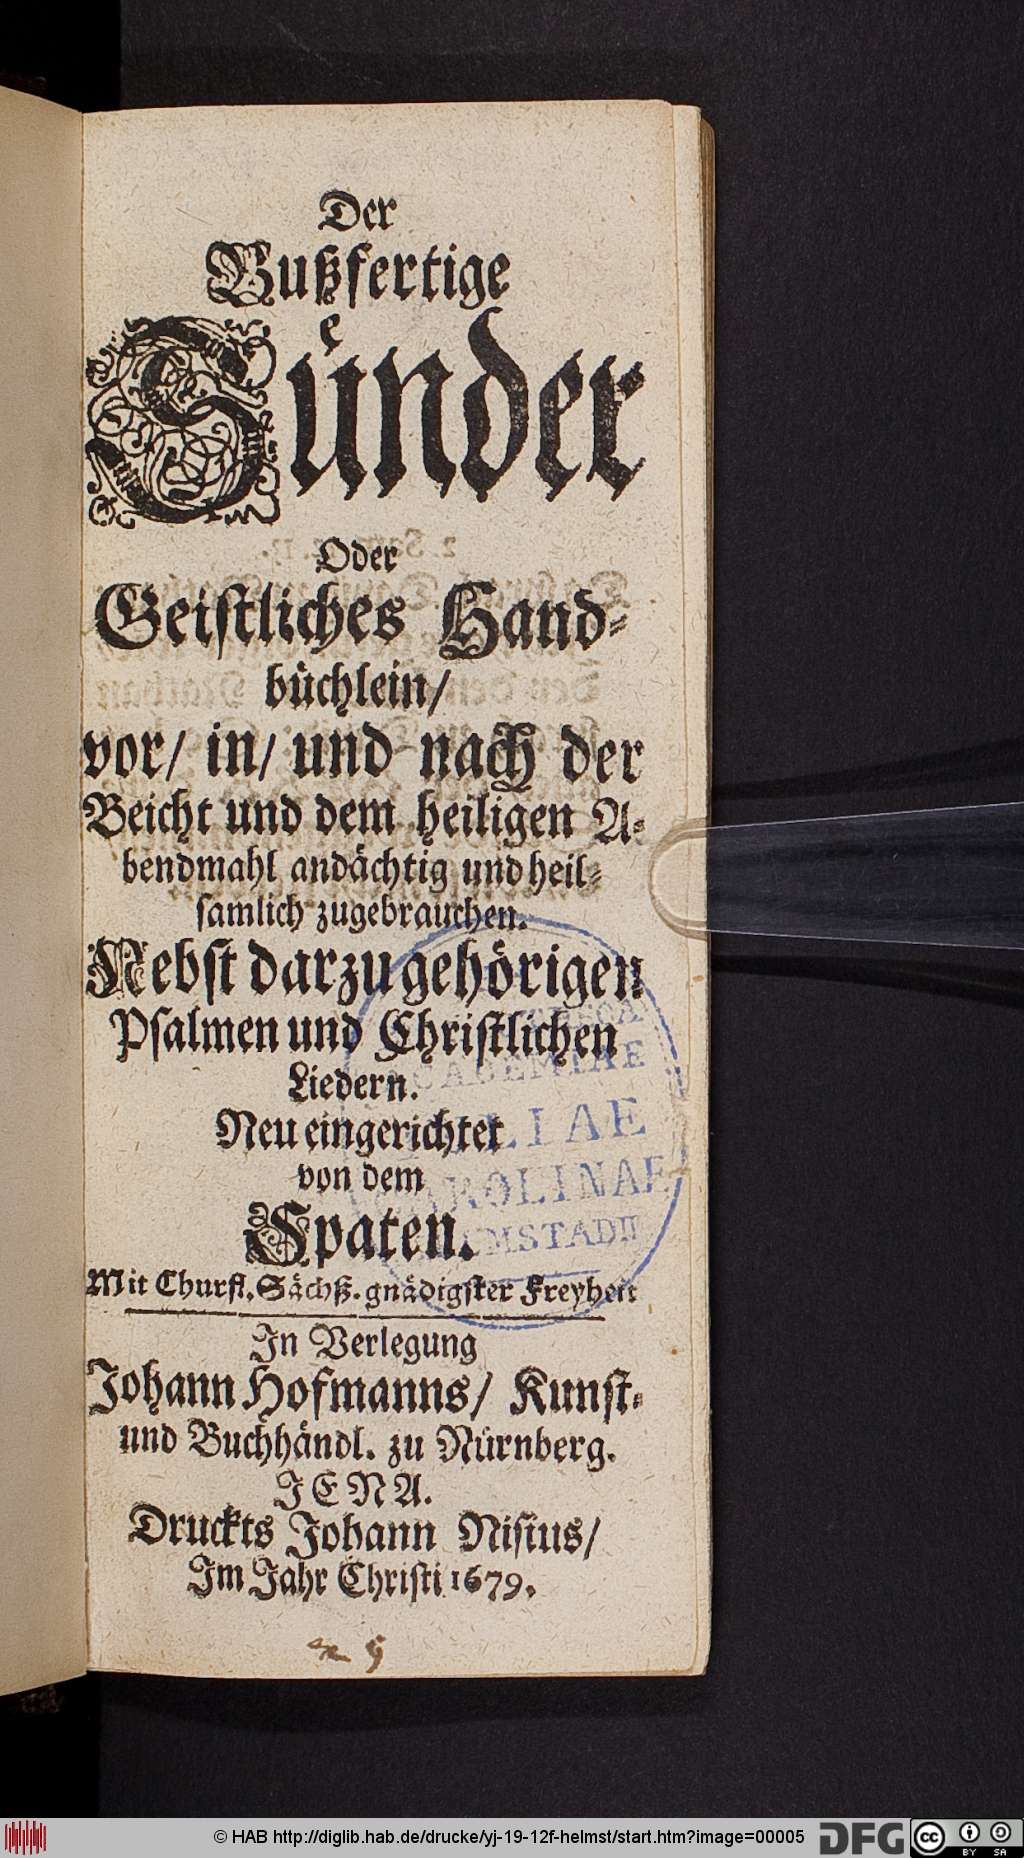 Der
Bußfertige
Suͤnder
Oder
Geiſtliches Hand⸗
buͤchlein/
vor/ in/ und nach der
Beicht und dem heiligen A⸗
bendmahl andaͤchtig und heil⸗
ſamlich zugebrauchen.
Nebſt darzu gehoͤrigen
Pſalmen und Chriſtlichen
Liedern.
Neu eingerichtet
von dem
Spaten.
Mit Churfl. Saͤchß. gnaͤdigſter Freyheit
In Verlegung
Johann Hofmanns/ Kunſt⸗
und Buchhaͤndl. zu Nuͤrnberg.
JENA.
Druckts Johann Niſius/
Im Jahr Chriſti 1679.
© HAB http://diglib.hab.de/drucke/yj-19-12f-helmst/start.htm?image=00005
DFG
cc
BY SA